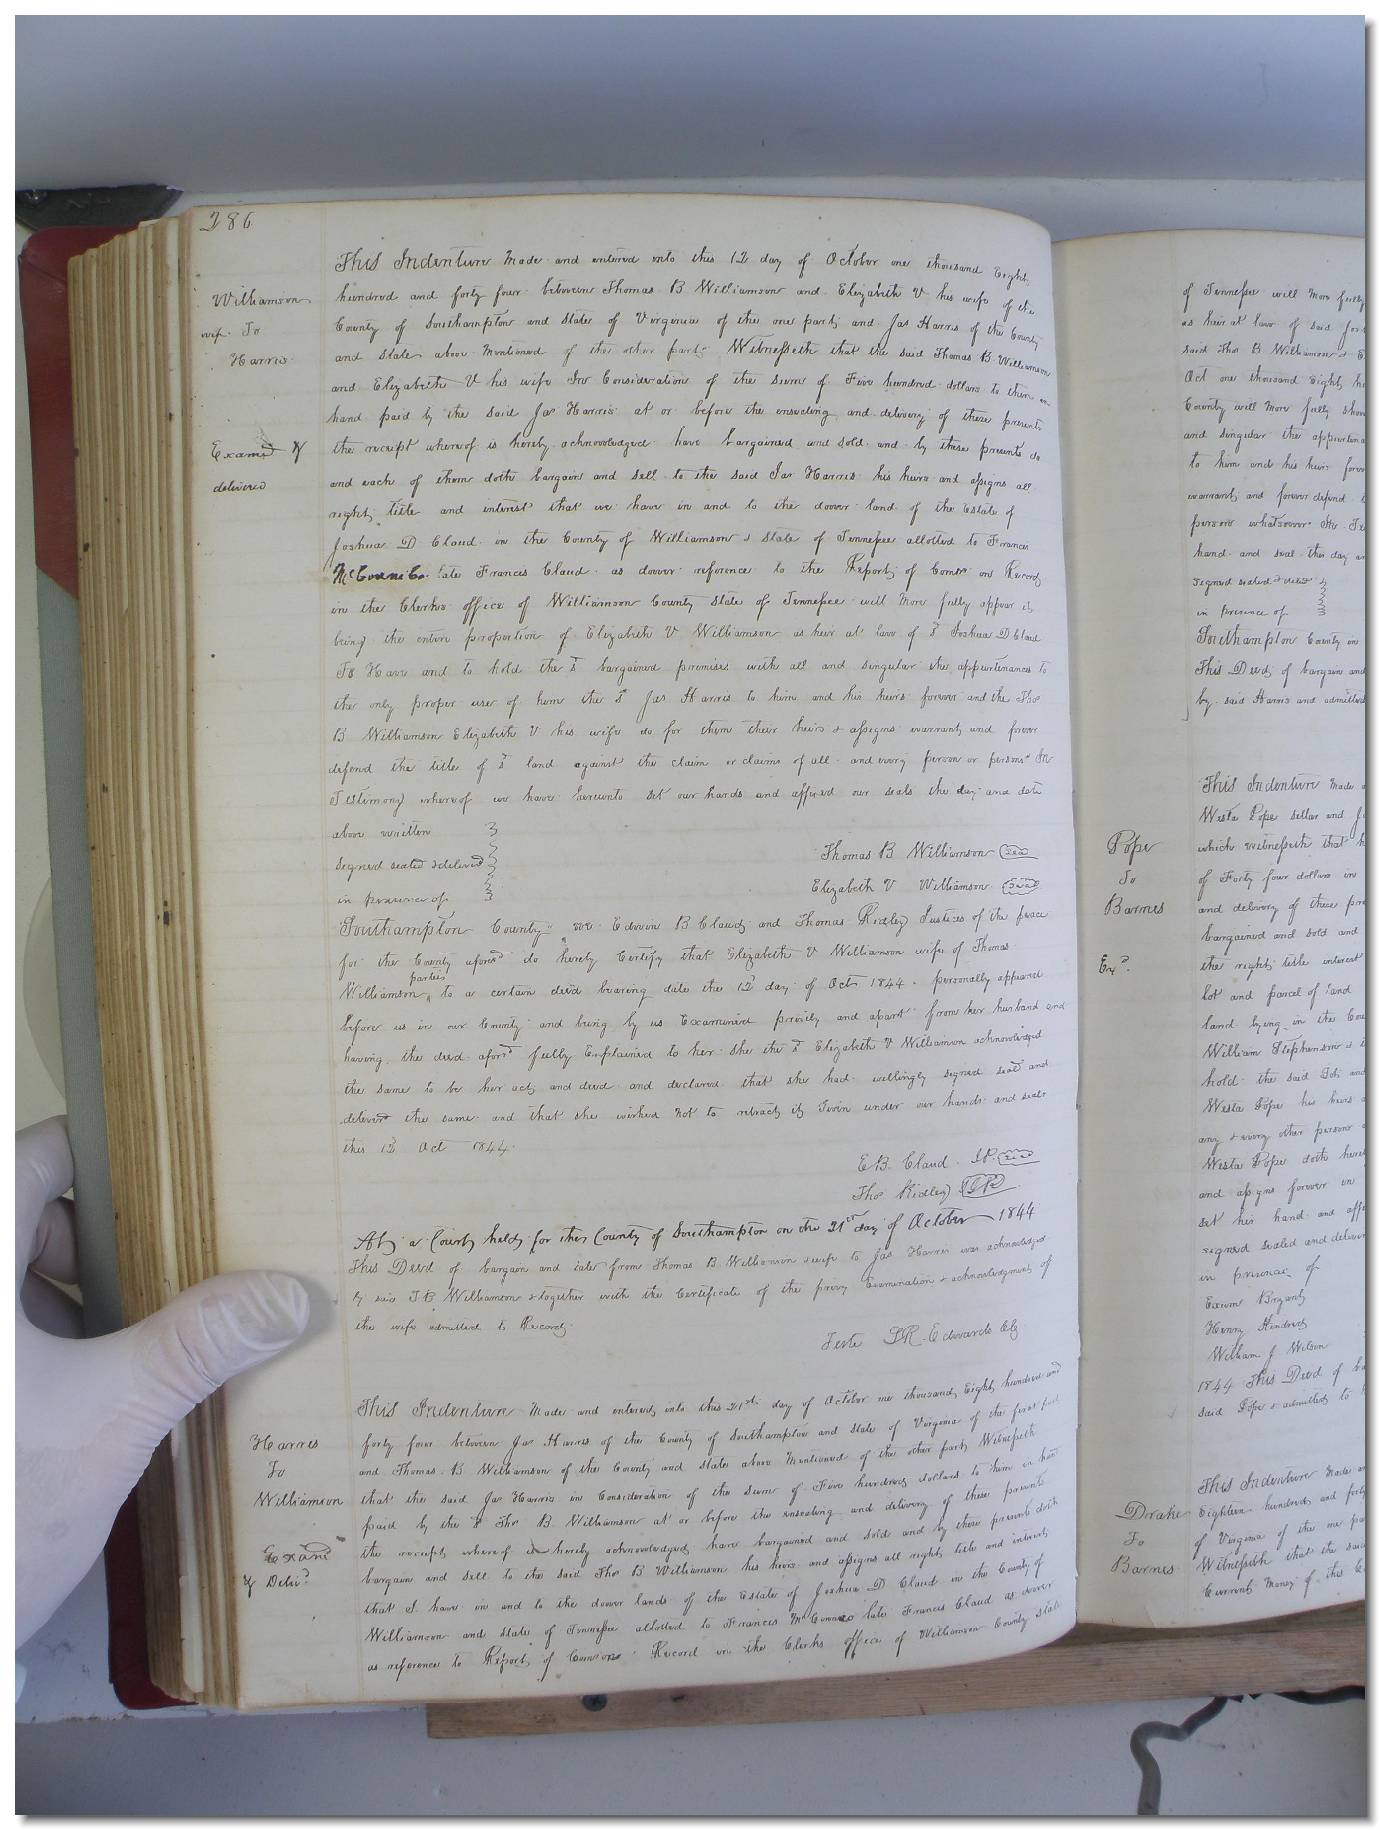 286
This Indenture Made and entered into this 12 day of October one thousand Eight
Williamson
wife To
Harris
hundred and forty four between Thomas B Williamson and Elizabeth V his wife of the
County of Southampton and State of Virginia of the one part and Jas Harris of the County
and State above Mentioned of the other part Witnesseth that the said Thomas B Williamson
and Elizabeth V his wife In Consideration of the sum of Five hundred dollars to them in
hand paid by the said Jas Harris at or before the ensealing and delivery of these presents
Examd &
delivered
the receipt whereof is hereby acknowledged have bargained and sold and by these presents do
and each of them doth bargain and sell to the said Jas Harris his heirs and assigns all
right title and interest that we have in and to the dower land of the Estate of
Joshua D Claud in the County of Williamson & State of Tennessee allotted to Frances
late Frances Claud as dower reference to the Report of Comrs on Record
in the Clerks office of Williamson County State of Tennessee will More fully appear it
being the entire proportion of Elizabeth V Williamson as heir at law of sd Joshua D Claud
To Have and to hold the sd bargained premises with all and singular the appurtenances to
the only proper use of him the sd Jas Harris to him and his heirs forever and the Tho
B Williamson Elizabeth V his wife do for them their heirs & assigns warrant and forever
defend the title of sd land against the claim or claims of all and every person or persons In
Testimony whereof we have hereunto set our hands and affixed our seals the day and date
above written
signed sealed & delivered
in presence of
Thomas B Williamson seal
Elizabeth V Williamson seal
Southampton County We Edwin B Claud and Thomas Ridley Justices of the peace
for the County aforsd do hereby Certify that Elizabeth V Williamson wife of Thomas
parties
Williamson to a certain deed bearing date the 12 day of Oct 1844 personally appeared
before us in our County and being by us Examined privily and apart from her husband and
having the deed aforsd fully Explained to her she the sd Elizabeth V Williamson acknowledged
the same to be her act and deed and declared that she had willingly signed seald and
deliverd the same and that she wished not to retract it Given under our hands and seals
this 12 Oct 1844
E B. Claud J.P. seal
Thos Ridley
At a Court held for the County of Southampton on the 21st day of October 1844
This Deed of bargain and sale from Thomas B Williamson & wife to Jas Harris was acknowledged
by said T B Williamson & together with the Certificate of the privy Examination & acknowledgment of
the wife admitted to Record
Teste L R Edwards Clk
This Indenture Made and entered into this 21st day of October one thousand Eight hundred and
Harris
To
Williamson
forty four between Jas Harris of the County of Southampton and State of Virginia of the first part
and Thomas B Williamson of the County and State above Mentioned of the other part Witnesseth
that the said Jas Harris in Consideration of the sum of Five hundred dollars to him in hand
paid by the sd Tho B Williamson at or before the ensealing and delivery of these presents
Examd
& Delivd
the receipt whereof is hereby acknowledged have bargained and sold and by these presents doth
bargain and sell to the said Tho B Williamson his heirs and assigns all right title and interest
that I have in and to the dower lands of the Estate of Joshua D Claud in the County of
Williamson and State of Tennessee allotted to Frances late Frances Claud as dower
as reference to Report of Comrs Record in the Clerks office of Williamson County State
of Tennessee will More fully
as heir at law of said
said Tho B Williamson & E
Oct one thousand Eight
County will More fully
and singular the
to him and his heirs
warrant and forever defend
person whatsoever In
hand and seal this day
signed sealed &
in presence of
Southampton County
This Deed of bargain and
by said Harris and admitted
Pope
To
Barnes
Exd
This Indenture Made
Westa Pope
which witnesseth that
of Forty four dollars in
and delivery of these
bargained and sold and
the right title interest
lot and parcel of land
land lying in the
William Stephenson
hold the said
Westa Pope his heirs
any & every other person
Westa Pope doth
and assigns forever in
set his hand and
signed sealed and
in presence of
Exum Bryant
Henry
William J Wilson
1844 This Deed of
said Pope & admitted to
Drake
To
Barnes
This Indenture Made
Eighteen hundred and
of Virginia of the one
Witnesseth that the said
Current Money of this